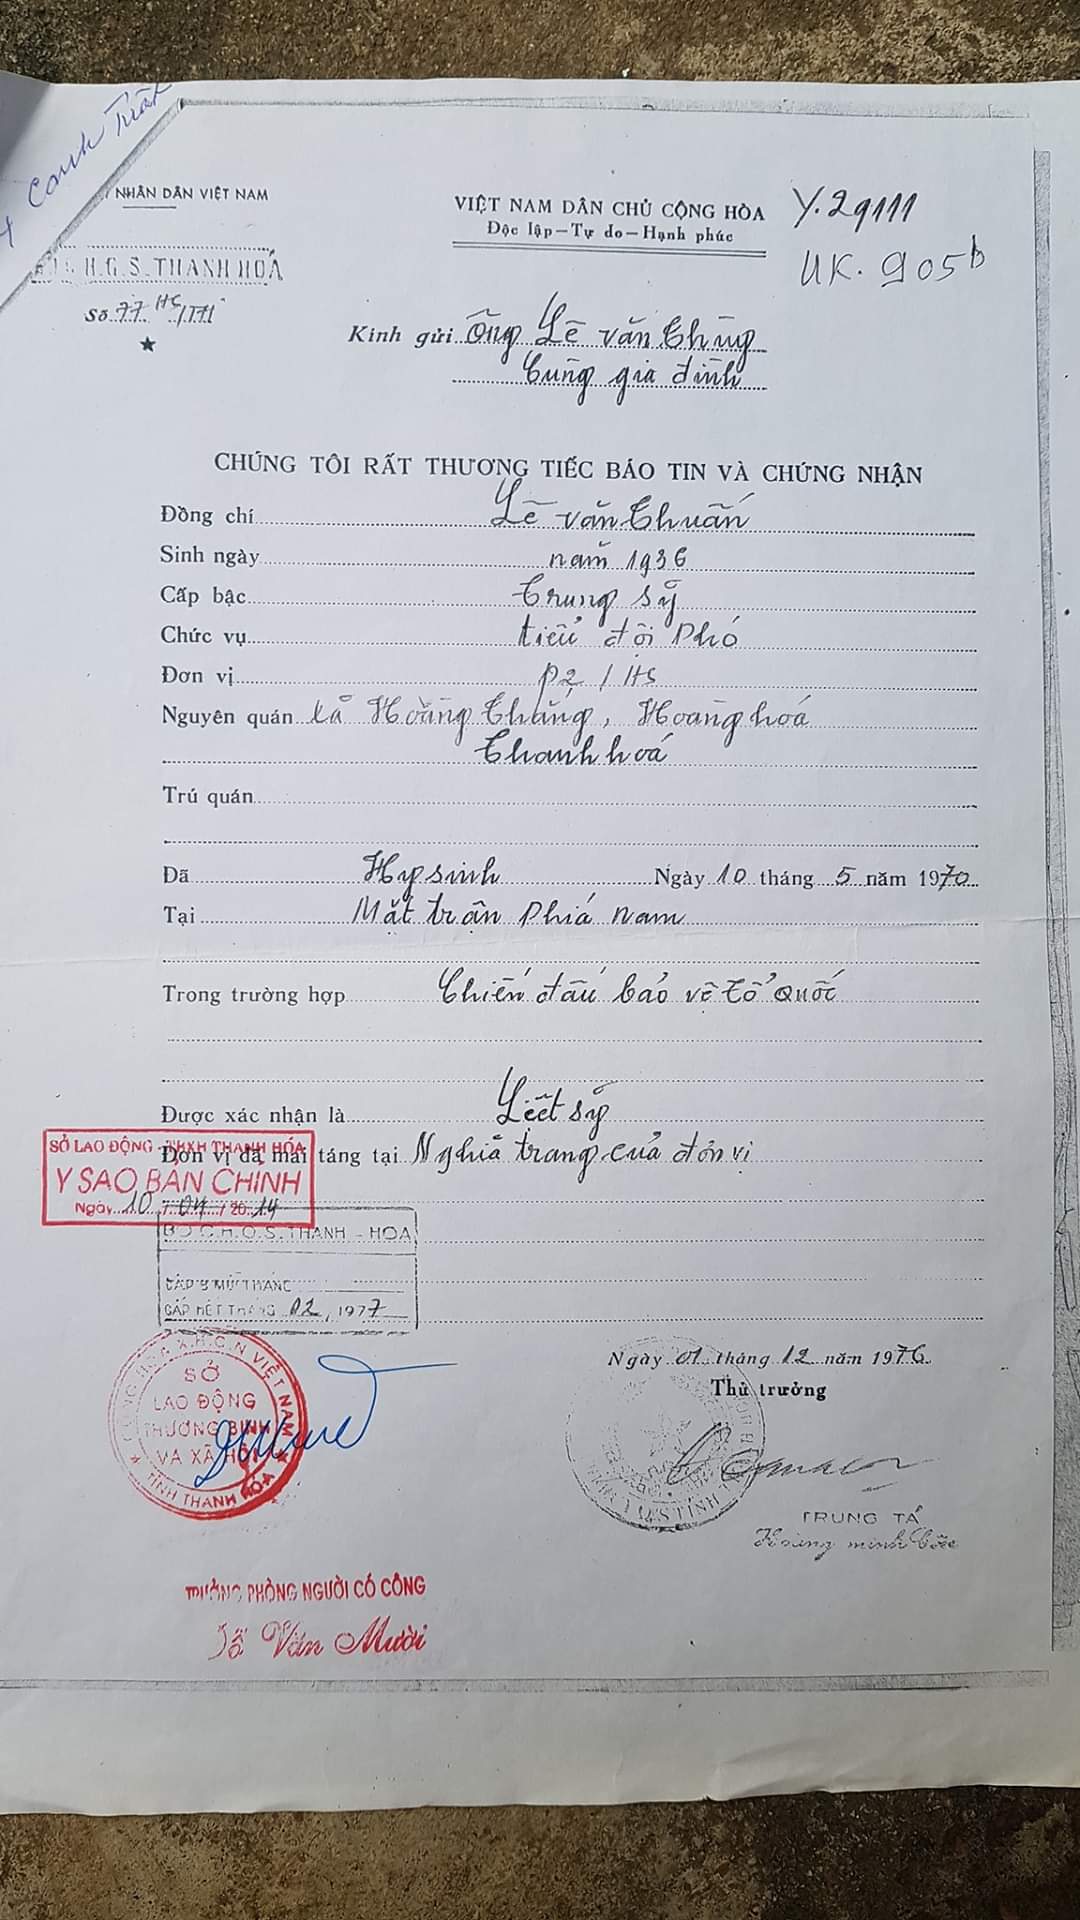 Canh Trât
NHÂN DÂN VIỆT NAM
H.Q.S. THANH HÓA
Số 77 HS/171
VIỆT NAM DÂN CHỦ CỘNG HÒA
Độc lập-Tự do-Hạnh phúc
Y.29111
UK. 905b
Kính gửi Ông Lê văn Chùng
Cùng gia đình
CHÚNG TÔI RẤT THƯƠNG TIẾC BÁO TIN VÀ CHỨNG NHẬN
Đồng chí Lê văn Chuẩn
Sinh ngày năm 1936
Cấp bậc Trung sỹ
Chức vụ tiểu đội Phó
Đơn vị P2 / HS
Nguyên quán xã Hoằng Thắng, Hoằng hoá
Thanh hoá
Trú quán
Đã Hy sinh Ngày 10 tháng 5 năm 1970
Tại Mặt trận Phía nam
Trong trường hợp Chiến đấu bảo vệ Tổ Quốc
Được xác nhận là Liệt sỹ
Đơn vị đã mai táng tại Nghĩa trang của đơn vị
SỞ LAO ĐỘNG - TBXH THANH HÓA
Y SAO BẢN CHÍNH
Ngày 10 / 04 / 2014
BỘ C.H.Q.S. THANH - HOA
CẤP HẾT THÁNG 02, 1977
Ngày 01 tháng 12 năm 1976
Thủ trưởng
CỘNG HÒA X.H.C.N VIỆT NAM
SỞ
LAO ĐỘNG
THƯƠNG BINH
VÀ XÃ HỘI
TỈNH THANH HÓA
TRUNG TÁ
TRƯỞNG PHÒNG NGƯỜI CÓ CÔNG
Văn Mười